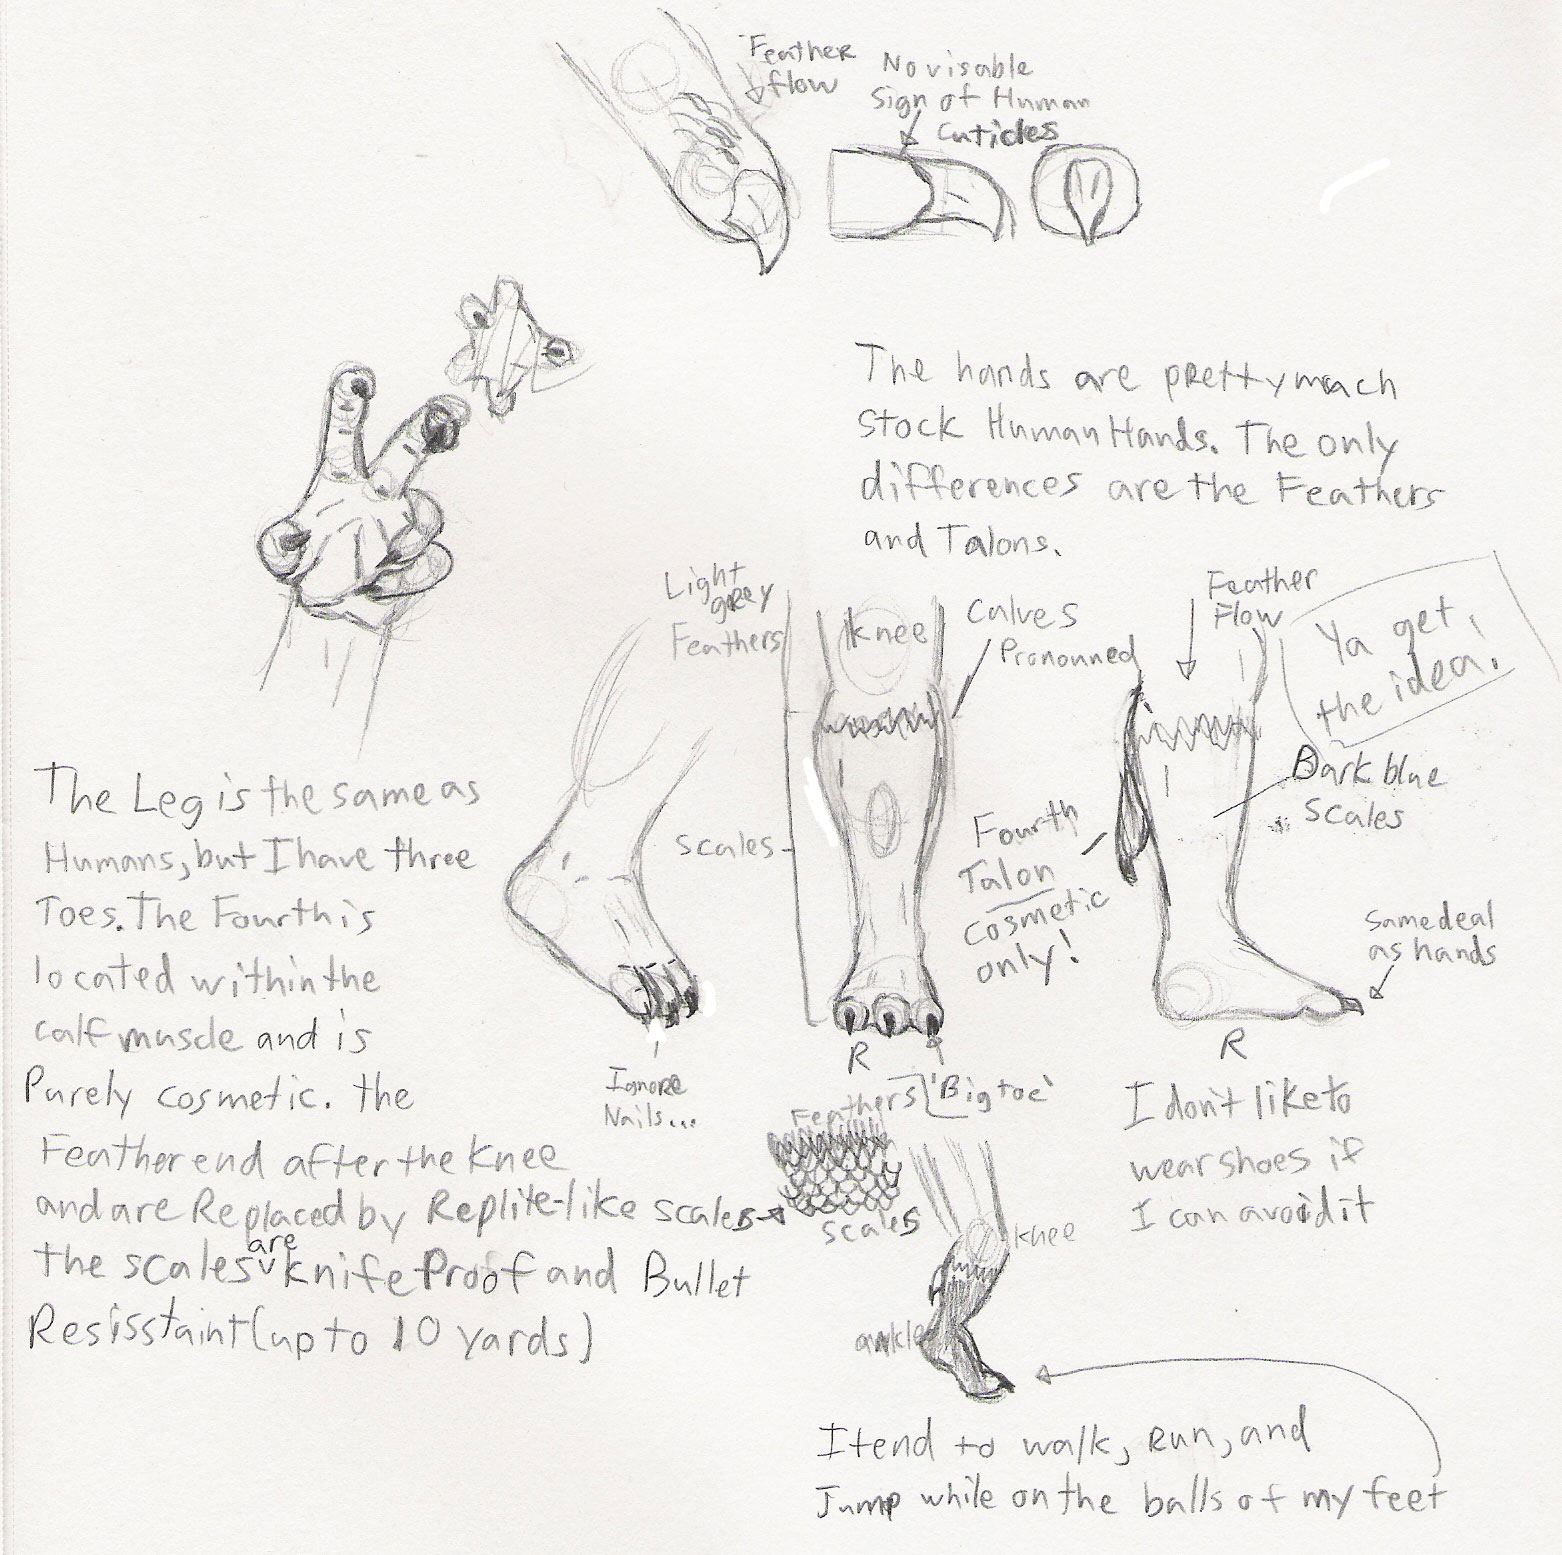 Feather
flow
No visable
Sign of Human
Cuticles
The hands are pretty much
stock Human Hands. The only
differences are the Feathers
and Talons.
Light
grey
Feathers
Knee
Calves
Pronounned
Feather
Flow
Ya get
the idea!
Dark blue
scales
Scales
Fourth
Talon
cosmetic
only!
Same deal
as hands
The Leg is the same as
Humans, but I have three
Toes. The Fourth is
located within the
calf muscle and is
Purely cosmetic. the
Feather end after the Knee
and are Replaced by Replite-like scales
the scales are knife Proof and Bullet
Resisstaint (up to 10 yards)
Ignore
Nails...
R
'Big toe'
R
Feathers
scales
I don't like to
wear shoes if
I can avoid it
knee
ankle
I tend to walk, run, and
Jump while on the balls of my feet